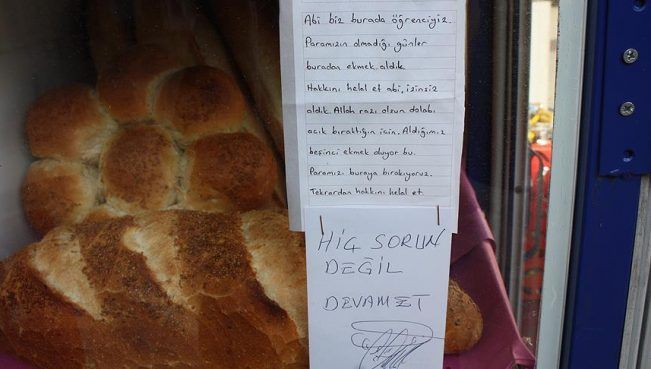 Abi biz burada öğrenciyiz.
Paramızın olmadığı günler
buradan ekmek aldık.
Hakkını helal et abi, izinsiz
aldık. Allah razı olsun dolabı
açık bıraktığın için. Aldığımız
beşinci ekmek duyor bu.
Paramızı buraya bırakıyoruz.
Tekrardan hakkını helal et.
HİÇ SORUN
DEĞİL
DEVAM ET